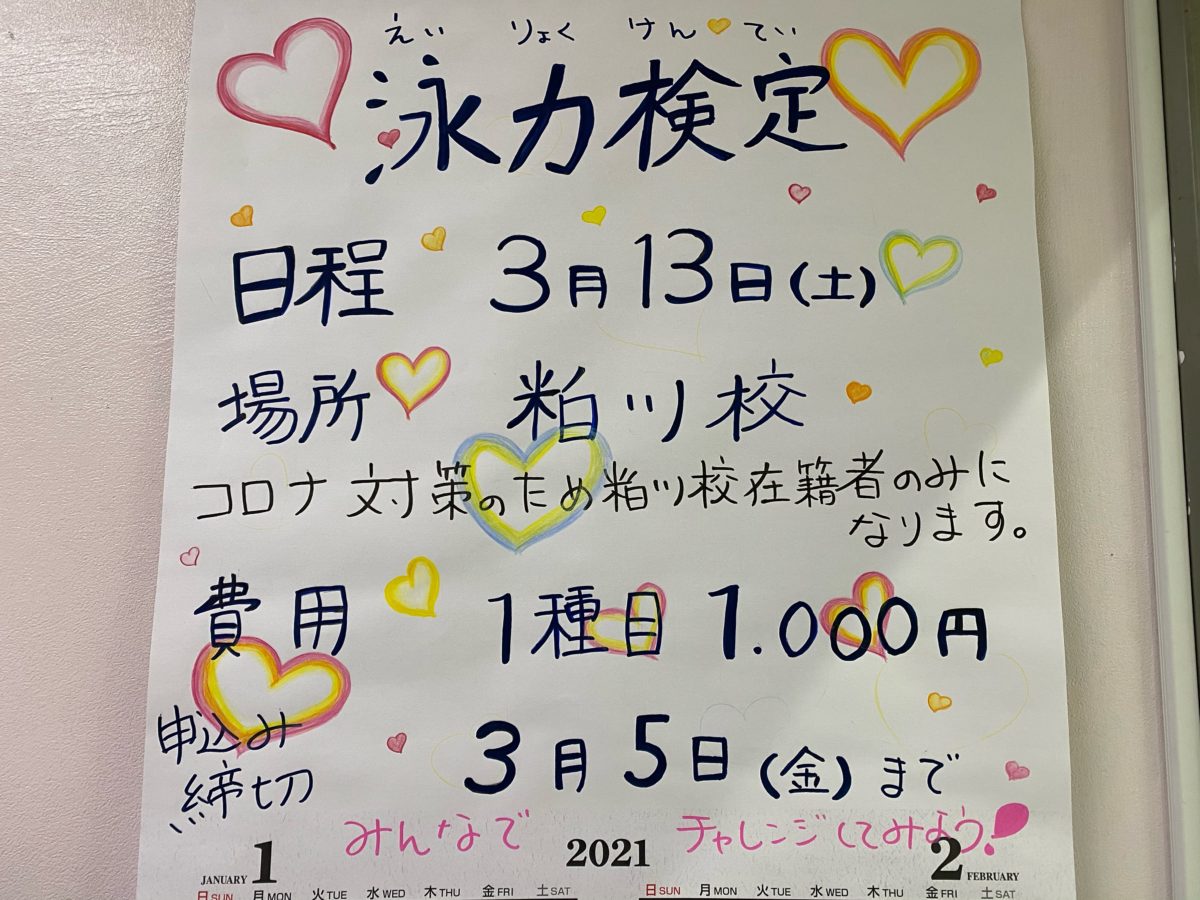 えい りょく けん てい
泳力検定
日程 3月13日(土)
場所 粕ツ校
コロナ対策のため粕ツ校在籍者のみに
なります。
費用 1種目 1.000円
申込み
締切 3月5日(金)まで
みんなで チャレンジしてみよう!
JANUARY 1 2021 2 FEBRUARY
日SUN 月MON 火TUE 水WED 木THU 金FRI 土SAT 日SUN 月MON 火TUE 水WED 木THU 金FRI 土SAT